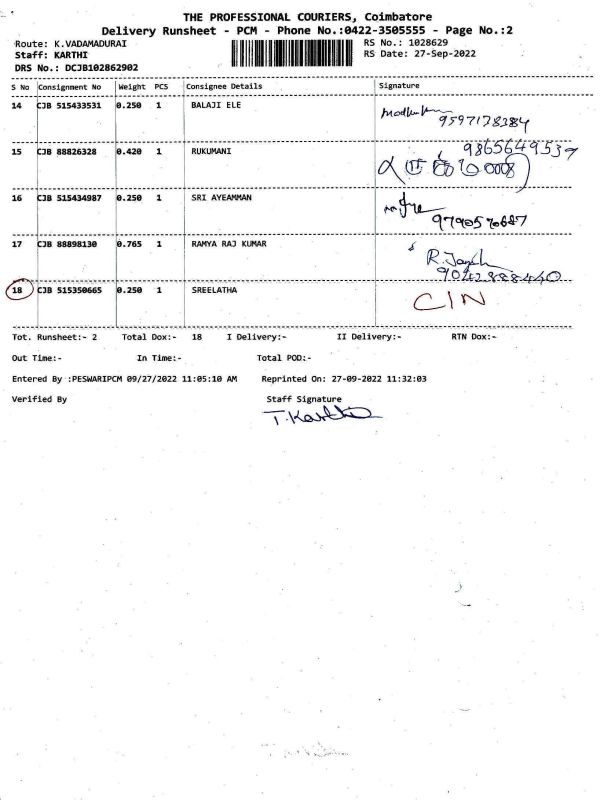 THE PROFESSIONAL COURIERS, Coimbatore
Delivery Runsheet - PCM - Phone No.:0422-3505555 - Page No.:2
Route: K.VADAMADURAI
RS No.: 1028629
Staff: KARTHI
RS Date: 27-Sep-2022
DRS No.: DCJB102862902
S No Consignment No Weight PCS Consignee Details Signature
14 CJB 515433531 0.250 1 BALAJI ELE
9597178384
15 CJB 88826328 0.420 1 RUKUMANI
9865649539
16 CJB 515434987 0.250 1 SRI AYEAMMAN
9790570687
17 CJB 88898130 0.765 1 RAMYA RAJ KUMAR
9042888440
18 CJB 515350665 0.250 1 SREELATHA CIN
Tot. Runsheet:- 2 Total Dox:- 18 I Delivery:- II Delivery:- RTN Dox:-
Out Time:- In Time:- Total POD:-
Entered By :PESWARIPCM 09/27/2022 11:05:10 AM Reprinted On: 27-09-2022 11:32:03
Verified By Staff Signature
T.Karthi